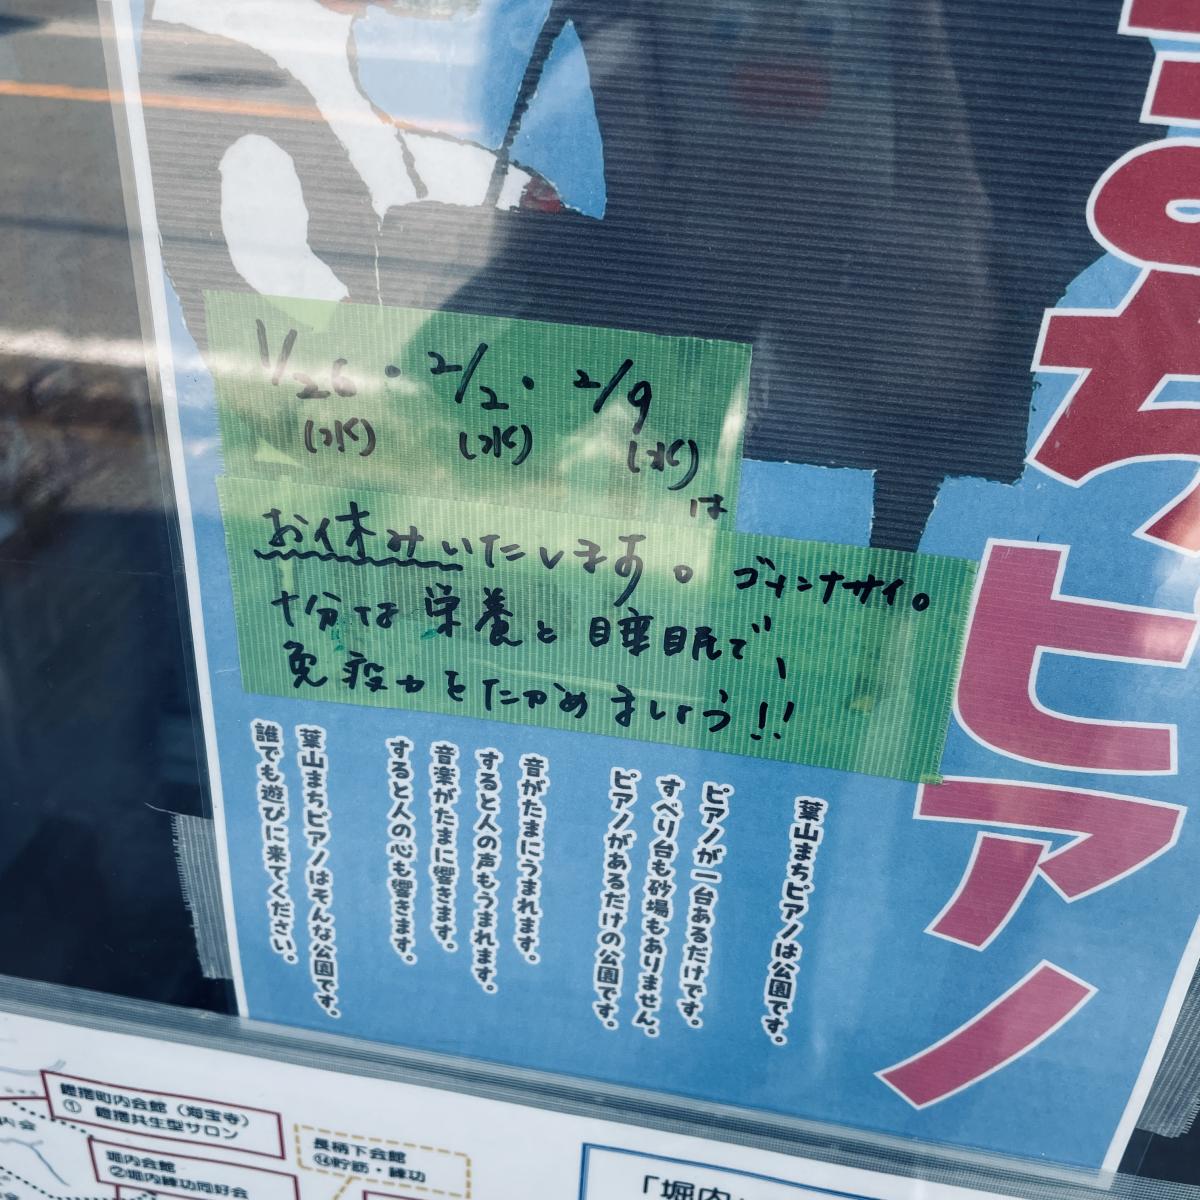 まちピアノ
1/26・2/2・2/9
(水) (水) (水)
は
お休みいたします。ゴメンナサイ。
十分な栄養と睡眠で、
免疫力をたかめましょう!!
葉山まちピアノは公園です。
ピアノが一台あるだけです。
すべり台も砂場もありません。
ピアノがあるだけの公園です。
音がたまにうまれます。
すると人の声もうまれます。
音楽がたまに響きます。
すると人の心も響きます。
葉山まちピアノはそんな公園です。
誰でも遊びに来てください。
鐙摺町内会館(海宝寺)
① 鐙摺共生型サロン
堀内会館
②堀内練功同好会
長柄下会館
⑭貯筋・練功
「堀内
内会